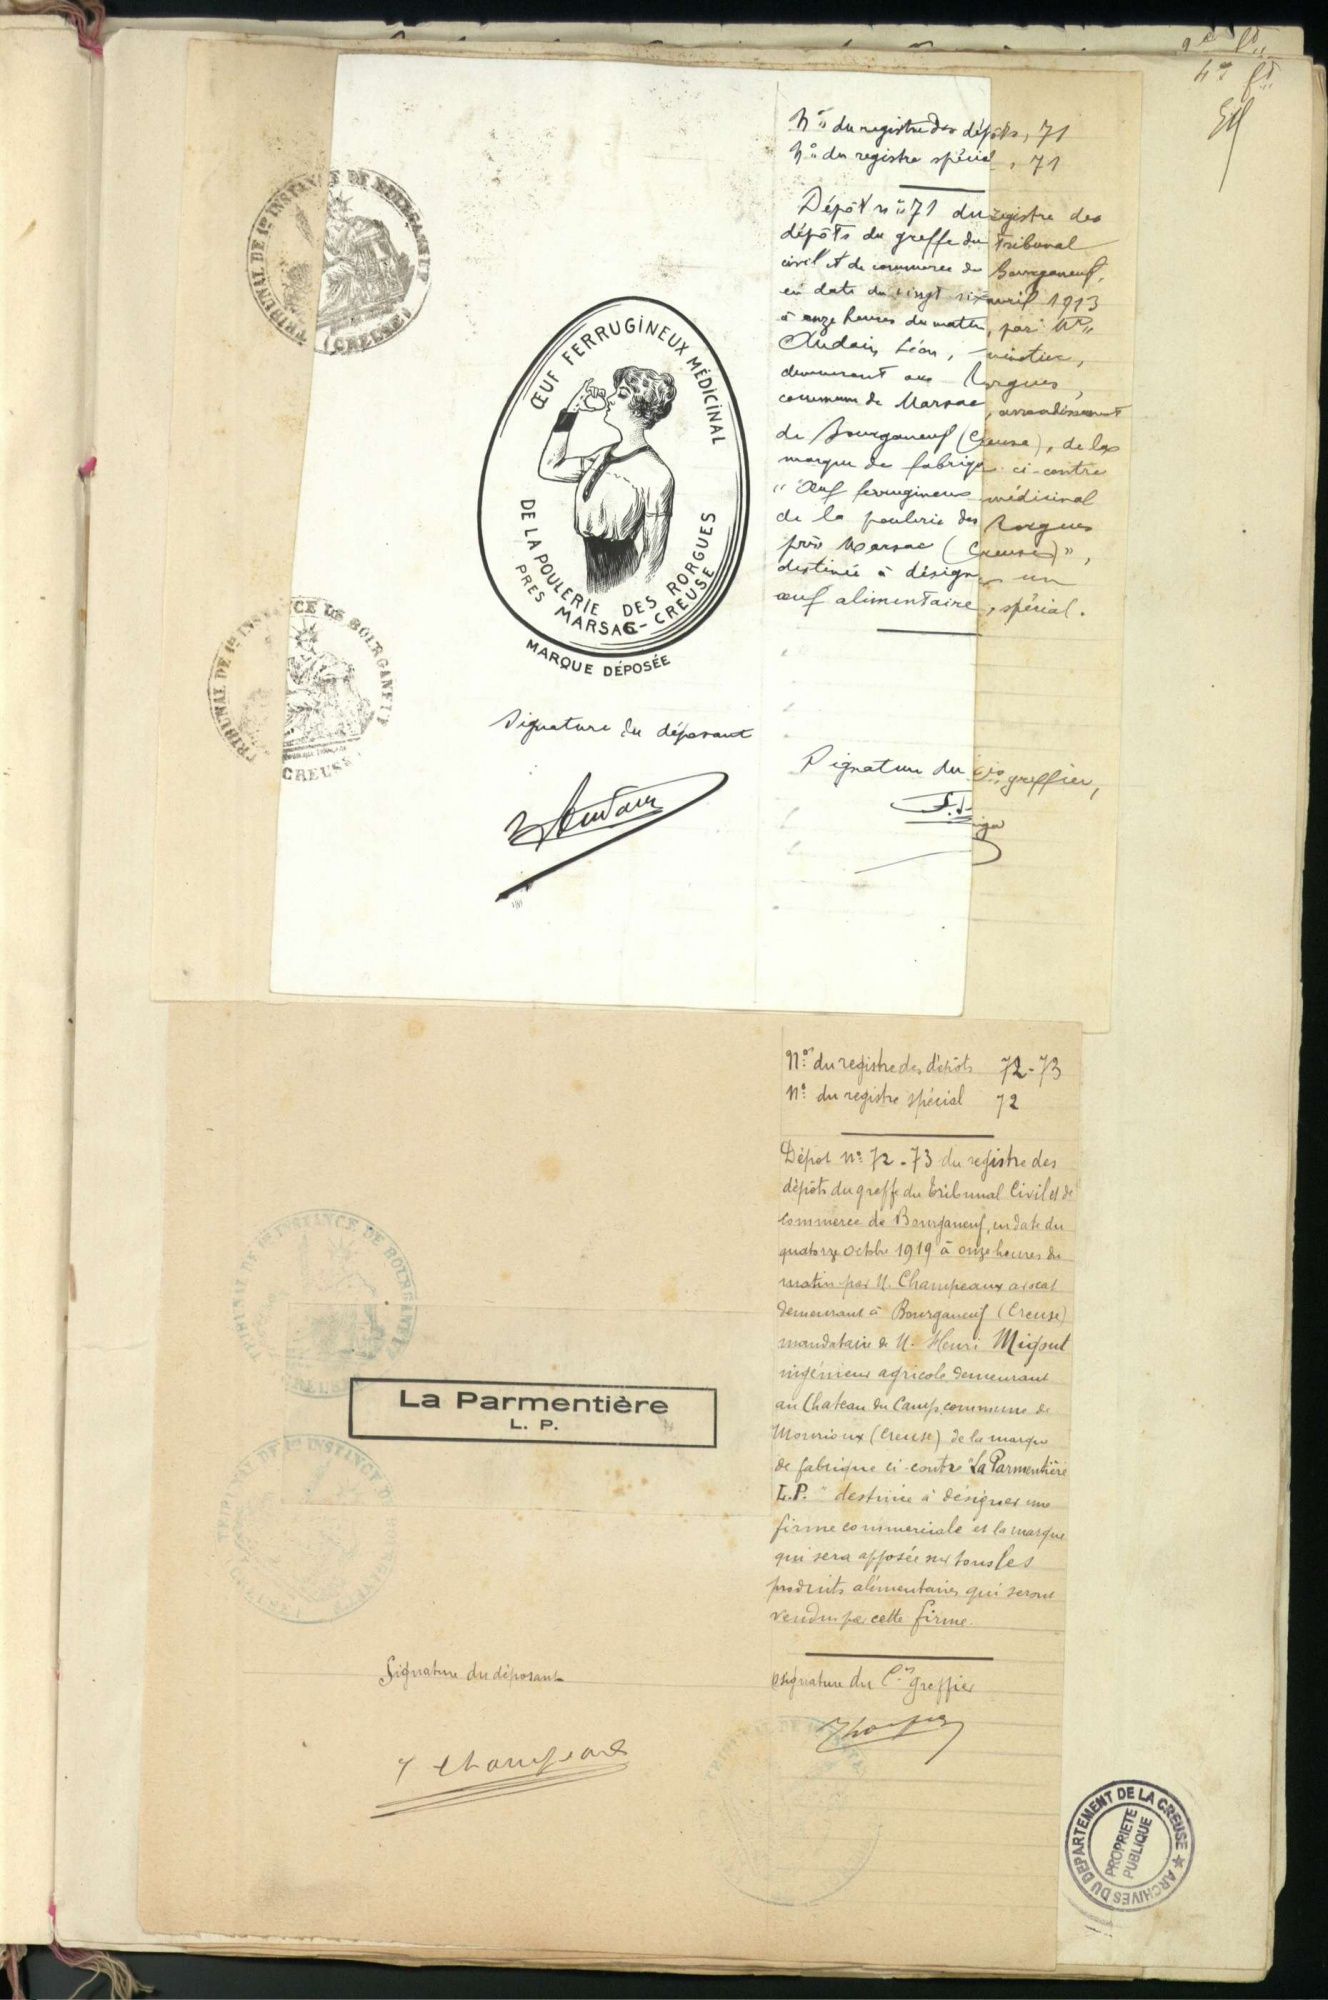 4e ft
Nº du registre des dépôts, 71
Nº du registre spécial, 71
Dépôt nº 71 du registre des
dépôts du greffe du Tribunal
civil et de commerce de Bourganeuf,
en date du vingt six avril 1913
à onze heures du matin, par Mr
Léon,
demeurant aux Rorgues,
commune de Marsac, arrondissement
de Bourganeuf (Creuse), de la
marque de fabrique ci-contre
"Œuf ferrugineux médicinal
de la poulerie des Rorgues
près Marsac (Creuse)",
destinée à désigner un
œuf alimentaire, spécial.
TRIBUNAL DE 1re INSTANCE DE BOURGANEUF
(CREUSE)
ŒUF FERRUGINEUX MÉDICINAL
DE LA POULERIE DES RORGUES
PRES MARSAC-CREUSE
MARQUE DÉPOSÉE
TRIBUNAL DE 1re INSTANCE DE BOURGANEUF
(CREUSE)
Signature du déposant
Signature du cis greffier,
Nº du registre des dépôts 72-73
Nº du registre spécial 72
Dépot nº 72-73 du registre des
dépôts du greffe du tribunal Civil et de
commerce de Bourganeuf, en date du
quatorze octobre 1919 à onze heures du
matin par M. Champeaux avocat
demeurant à Bourganeuf (Creuse)
mandataire de M. Henri Migout
ingénieur agricole demeurant
au Chateau du Camp, commune de
Mourioux (Creuse) de la marque
de fabrique ci-contre "La Parmentière
L.P." destinée à désigner une
firme commerciale et la marque
qui sera apposée sur tous les
produits alimentaires qui seront
vendus par cette firme.
TRIBUNAL DE 1re INSTANCE DE BOURGANEUF
(CREUSE)
La Parmentière
L. P.
TRIBUNAL DE 1re INSTANCE DE BOURGANEUF
(CREUSE)
Signature du déposant
Champeaux
Signature du Cis greffier
ARCHIVES DU DEPARTEMENT DE LA CREUSE ★
PROPRIETE
PUBLIQUE